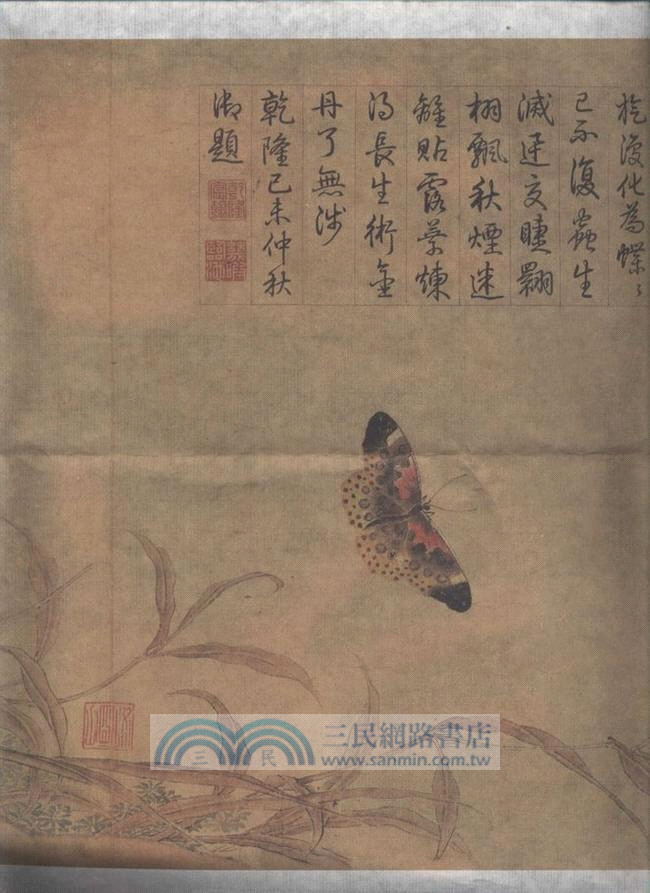 旋復化為蝶々
已不復蟲生
滅交睫翾
栩飄秋煙迷
離貼露葉煉
得長生術金
丹了無涉
乾隆己未仲秋
御題
三民
三民網路書店
www.sanmin.com.tw